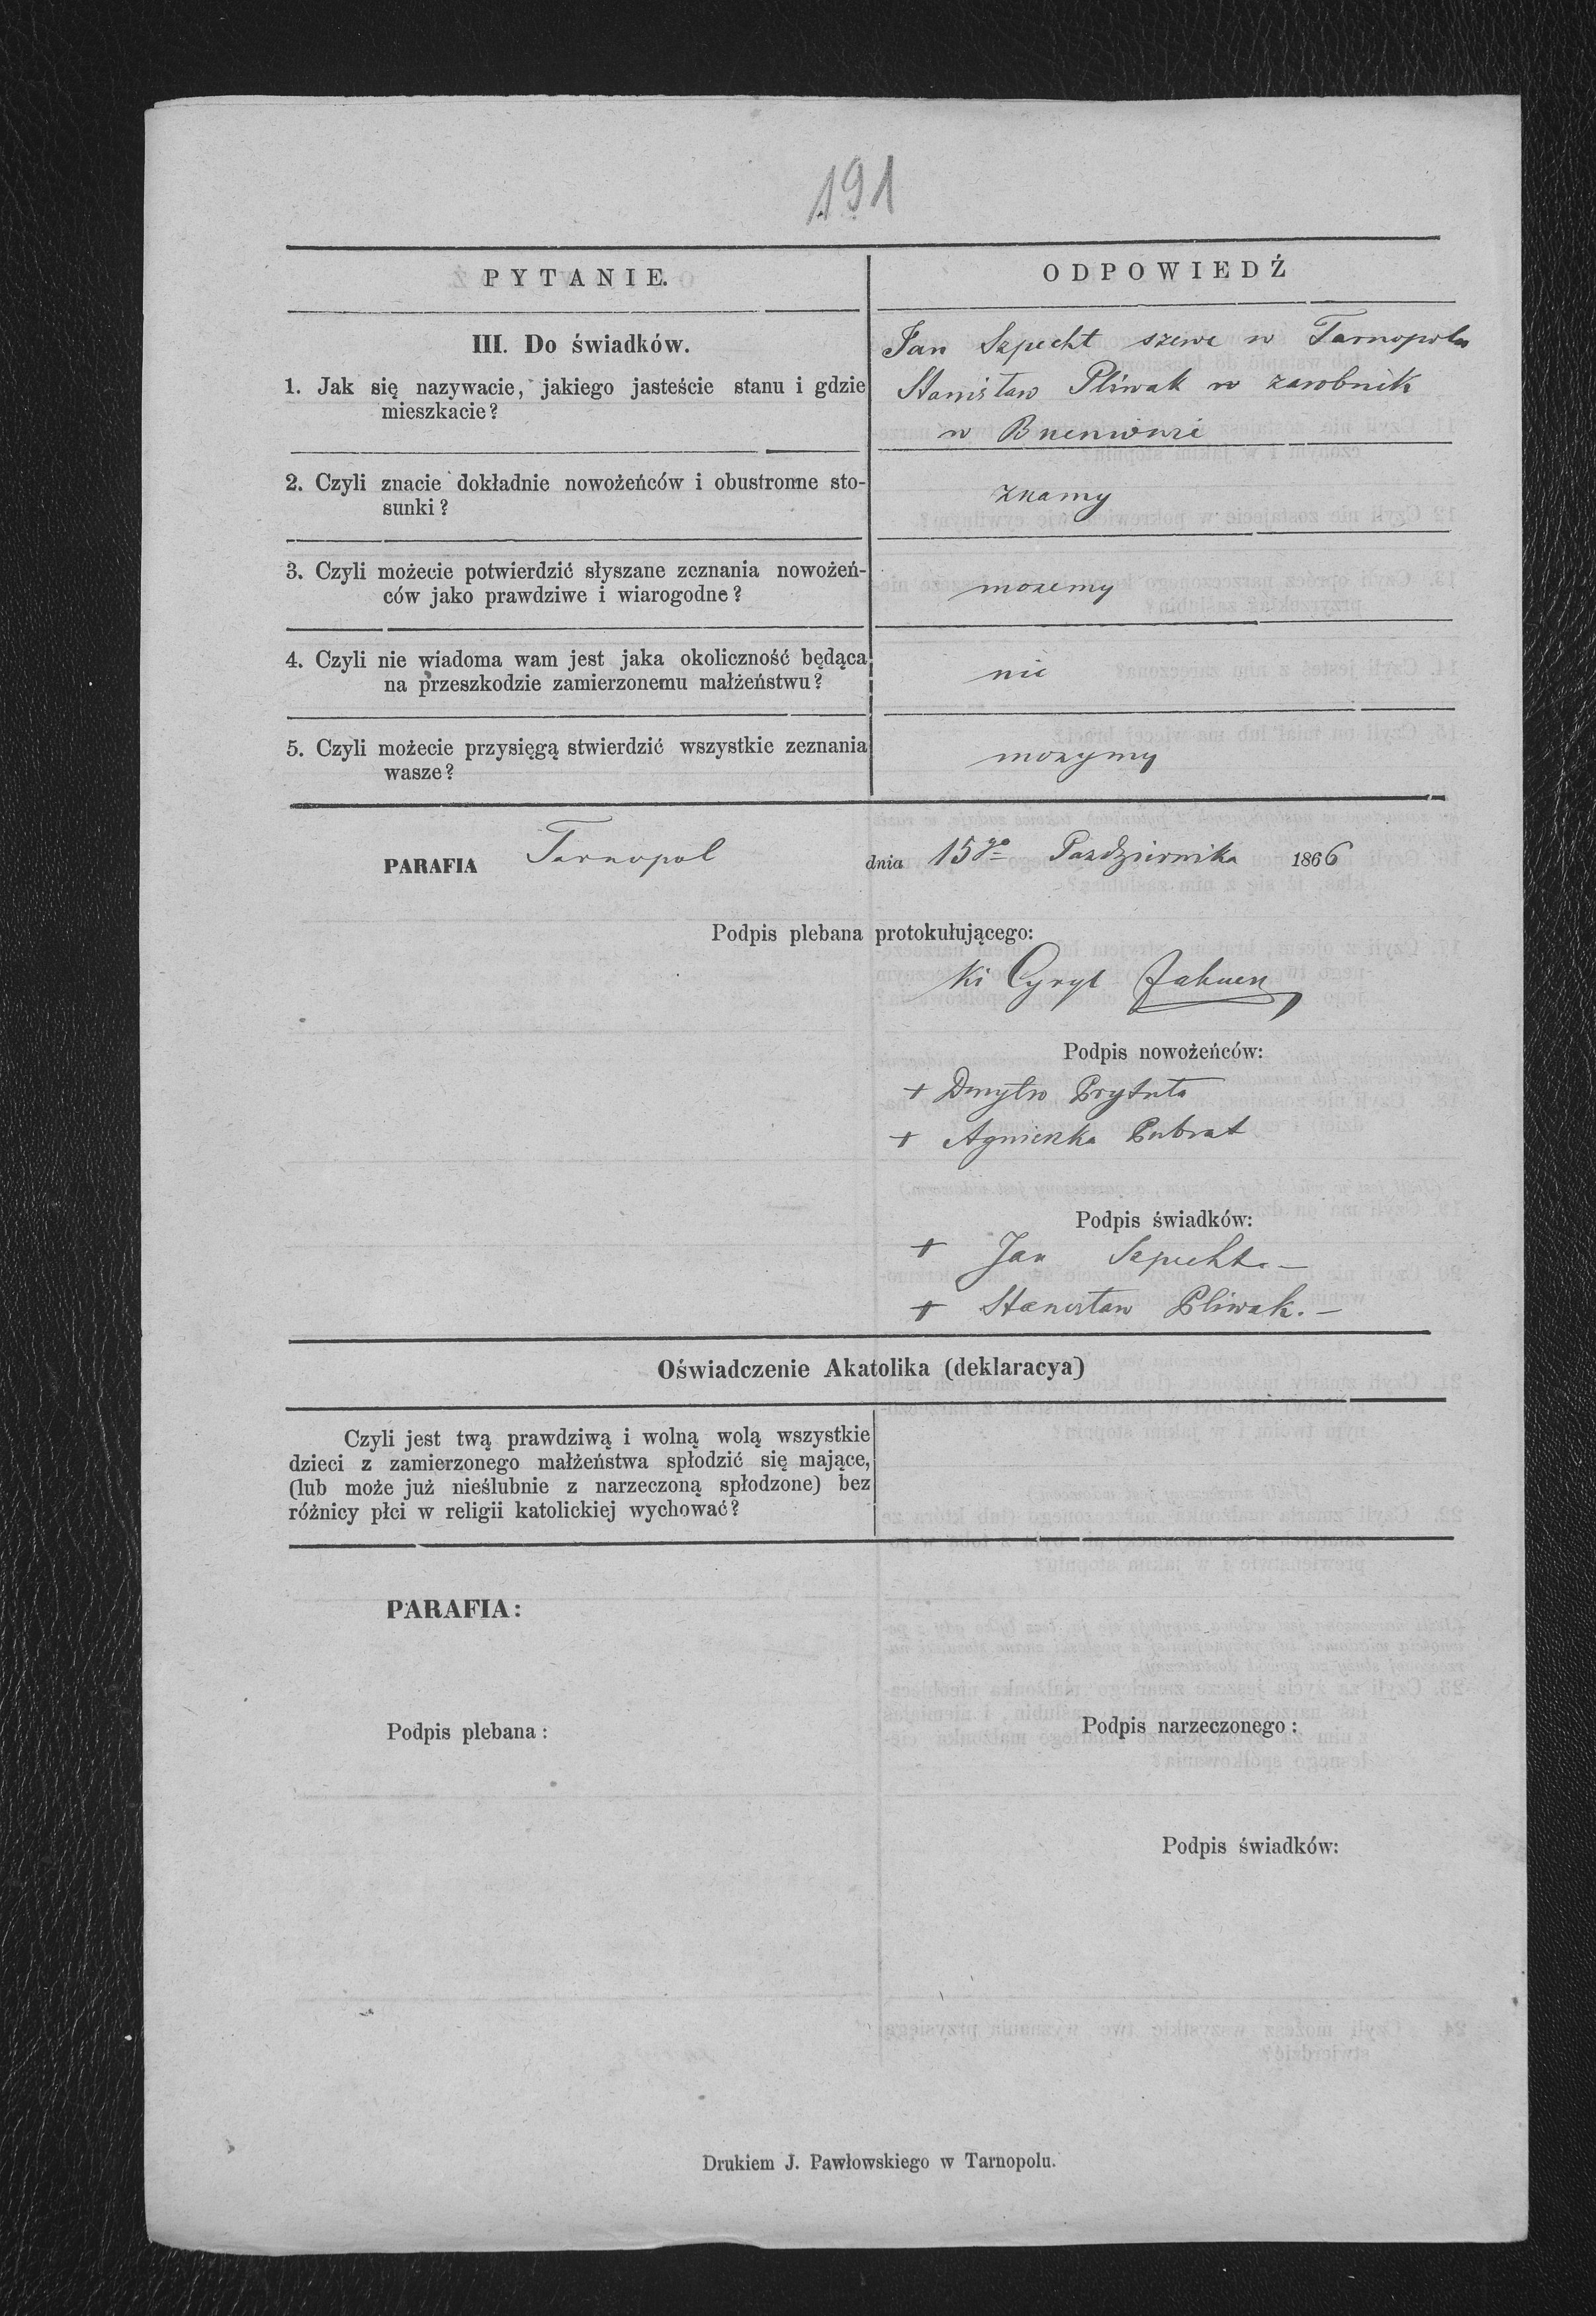 191
PYTANIE.
ODPOWIEDŹ
III. Do świadków.
1. Jak się nazywacie, jakiego jasteście stanu i gdzie
mieszkacie?
Jan Szpecht szewc w Tarnopolu
Stanisław Pliwak w zarobnik
w
2. Czyli znacie dokładnie nowożeńców i obustronne sto-
sunki?
znamy
3. Czyli możecie potwierdzić słyszane zeznania nowożeń-
ców jako prawdziwe i wiarogodne?
mozemy
4. Czyli nie wiadoma wam jest jaka okoliczność będąca
na przeszkodzie zamierzonemu małżeństwu?
nie
5. Czyli możecie przysięgą stwierdzić wszystkie zeznania
wasze?
mozymy
PARAFIA Tarnopol dnia 15go Pazdziernika 1866
Podpis plebana protokułującego:
Cyryl
Podpis nowożeńców:
+ Dmytro Prytuła
+ Agnieszka
Podpis świadków:
+ Jan Szpecht. —
+ Stanisław Pliwak. —
Oświadczenie Akatolika (deklaracya)
Czyli jest twą prawdziwą i wolną wolą wszystkie
dzieci z zamierzonego małżeństwa spłodzić się mające,
(lub może już nieślubnie z narzeczoną spłodzone) bez
różnicy płci w religii katolickiej wychować?
PARAFIA:
Podpis plebana:
Podpis narzeczonego:
Podpis świadków:
Drukiem J. Pawłowskiego w Tarnopolu.